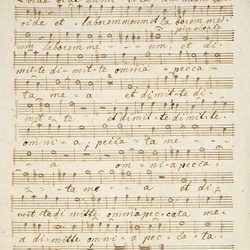 vide et laborem meum et laborem me
piu vivace
um laborem me um et di
mit te di mit te omnia pecca
ta me a et dimit te di
mit te et dimit te dimit te
omni a pecca ta me
a omni a pecca
ta me a et di
mitte dimitte omnia peccata me
a dimitte omnia peccata